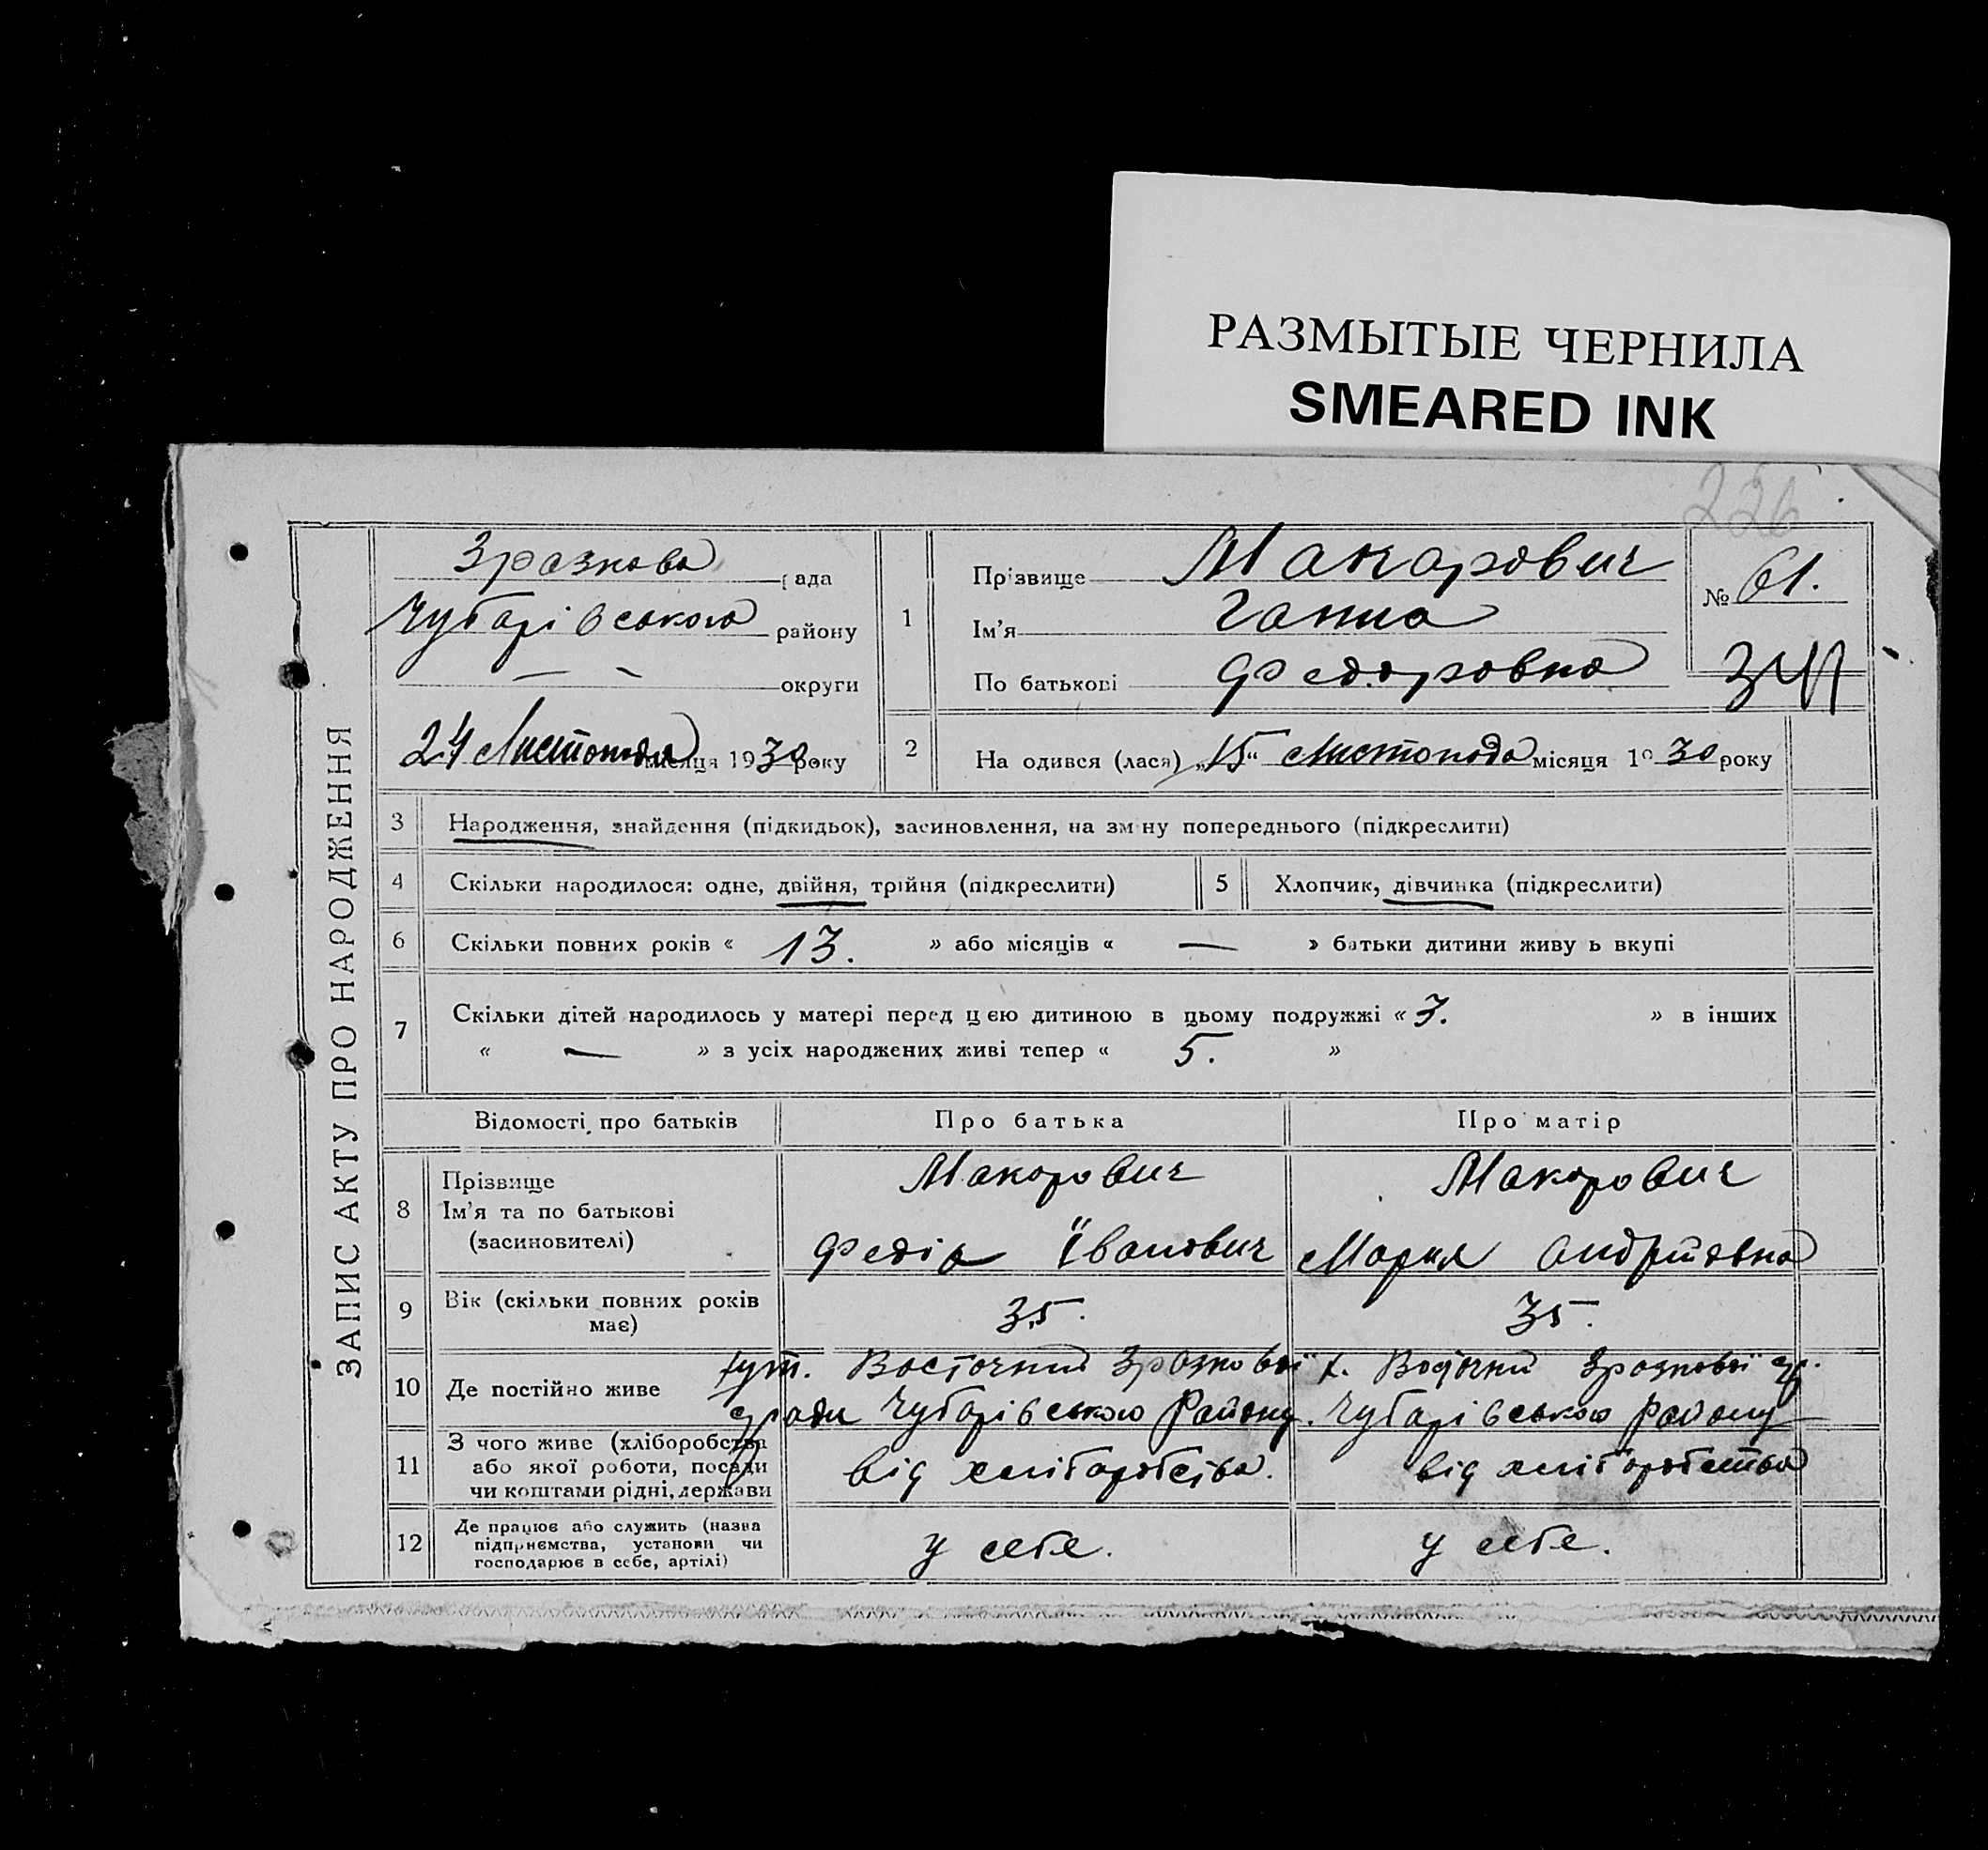 РАЗМЫТЫЕ ЧЕРНИЛА
SMEARED INK
226
ЗАПИС АКТУ ПРО НАРОДЖЕННЯ
Зразкова рада
Чубарівського району
— — округи
24 Листопада місяця 1930 року
1
Прізвище Макарович
Ім'я Ганна
По батькові Федоровна
№ 61.
2 На одився (лася) „15“ Листопада місяця 1930 року
3 Народження, знайдення (підкидьок), засиновлення, на зміну попереднього (підкреслити)
4 Скільки народилося: одне, двійня, трійня (підкреслити) 5 Хлопчик, дівчинка (підкреслити)
6 Скільки повних років « 13. » або місяців « — » батьки дитини живу ь вкупі
7 Скільки дітей народилось у матері перед цєю дитиною в цьому подружжі « 3. » в інших
« — » з усіх народжених живі тепер « 5. »
Відомості про батьків Про батька Про матір
8 Прізвище
Ім'я та по батькові
(засиновителі)
Макорович
Федір Іванович
Макорович
Мария Андріївна
9 Вік (скільки повних років
має)
35.
35.
10 Де постійно живе
хут. Восточний Зразкової
зради Чубарівського Району.
х. Восточний Зразкової зр.
Чубарівського Району
11 З чого живе (хліборобства
або якої роботи, посади
чи коштами рідні, держави
від хліборобства.
від хліборобства
12 Де працює або служить (назва
підприємства, установи чи
господарює в себе, артілі)
у себе.
у себе.